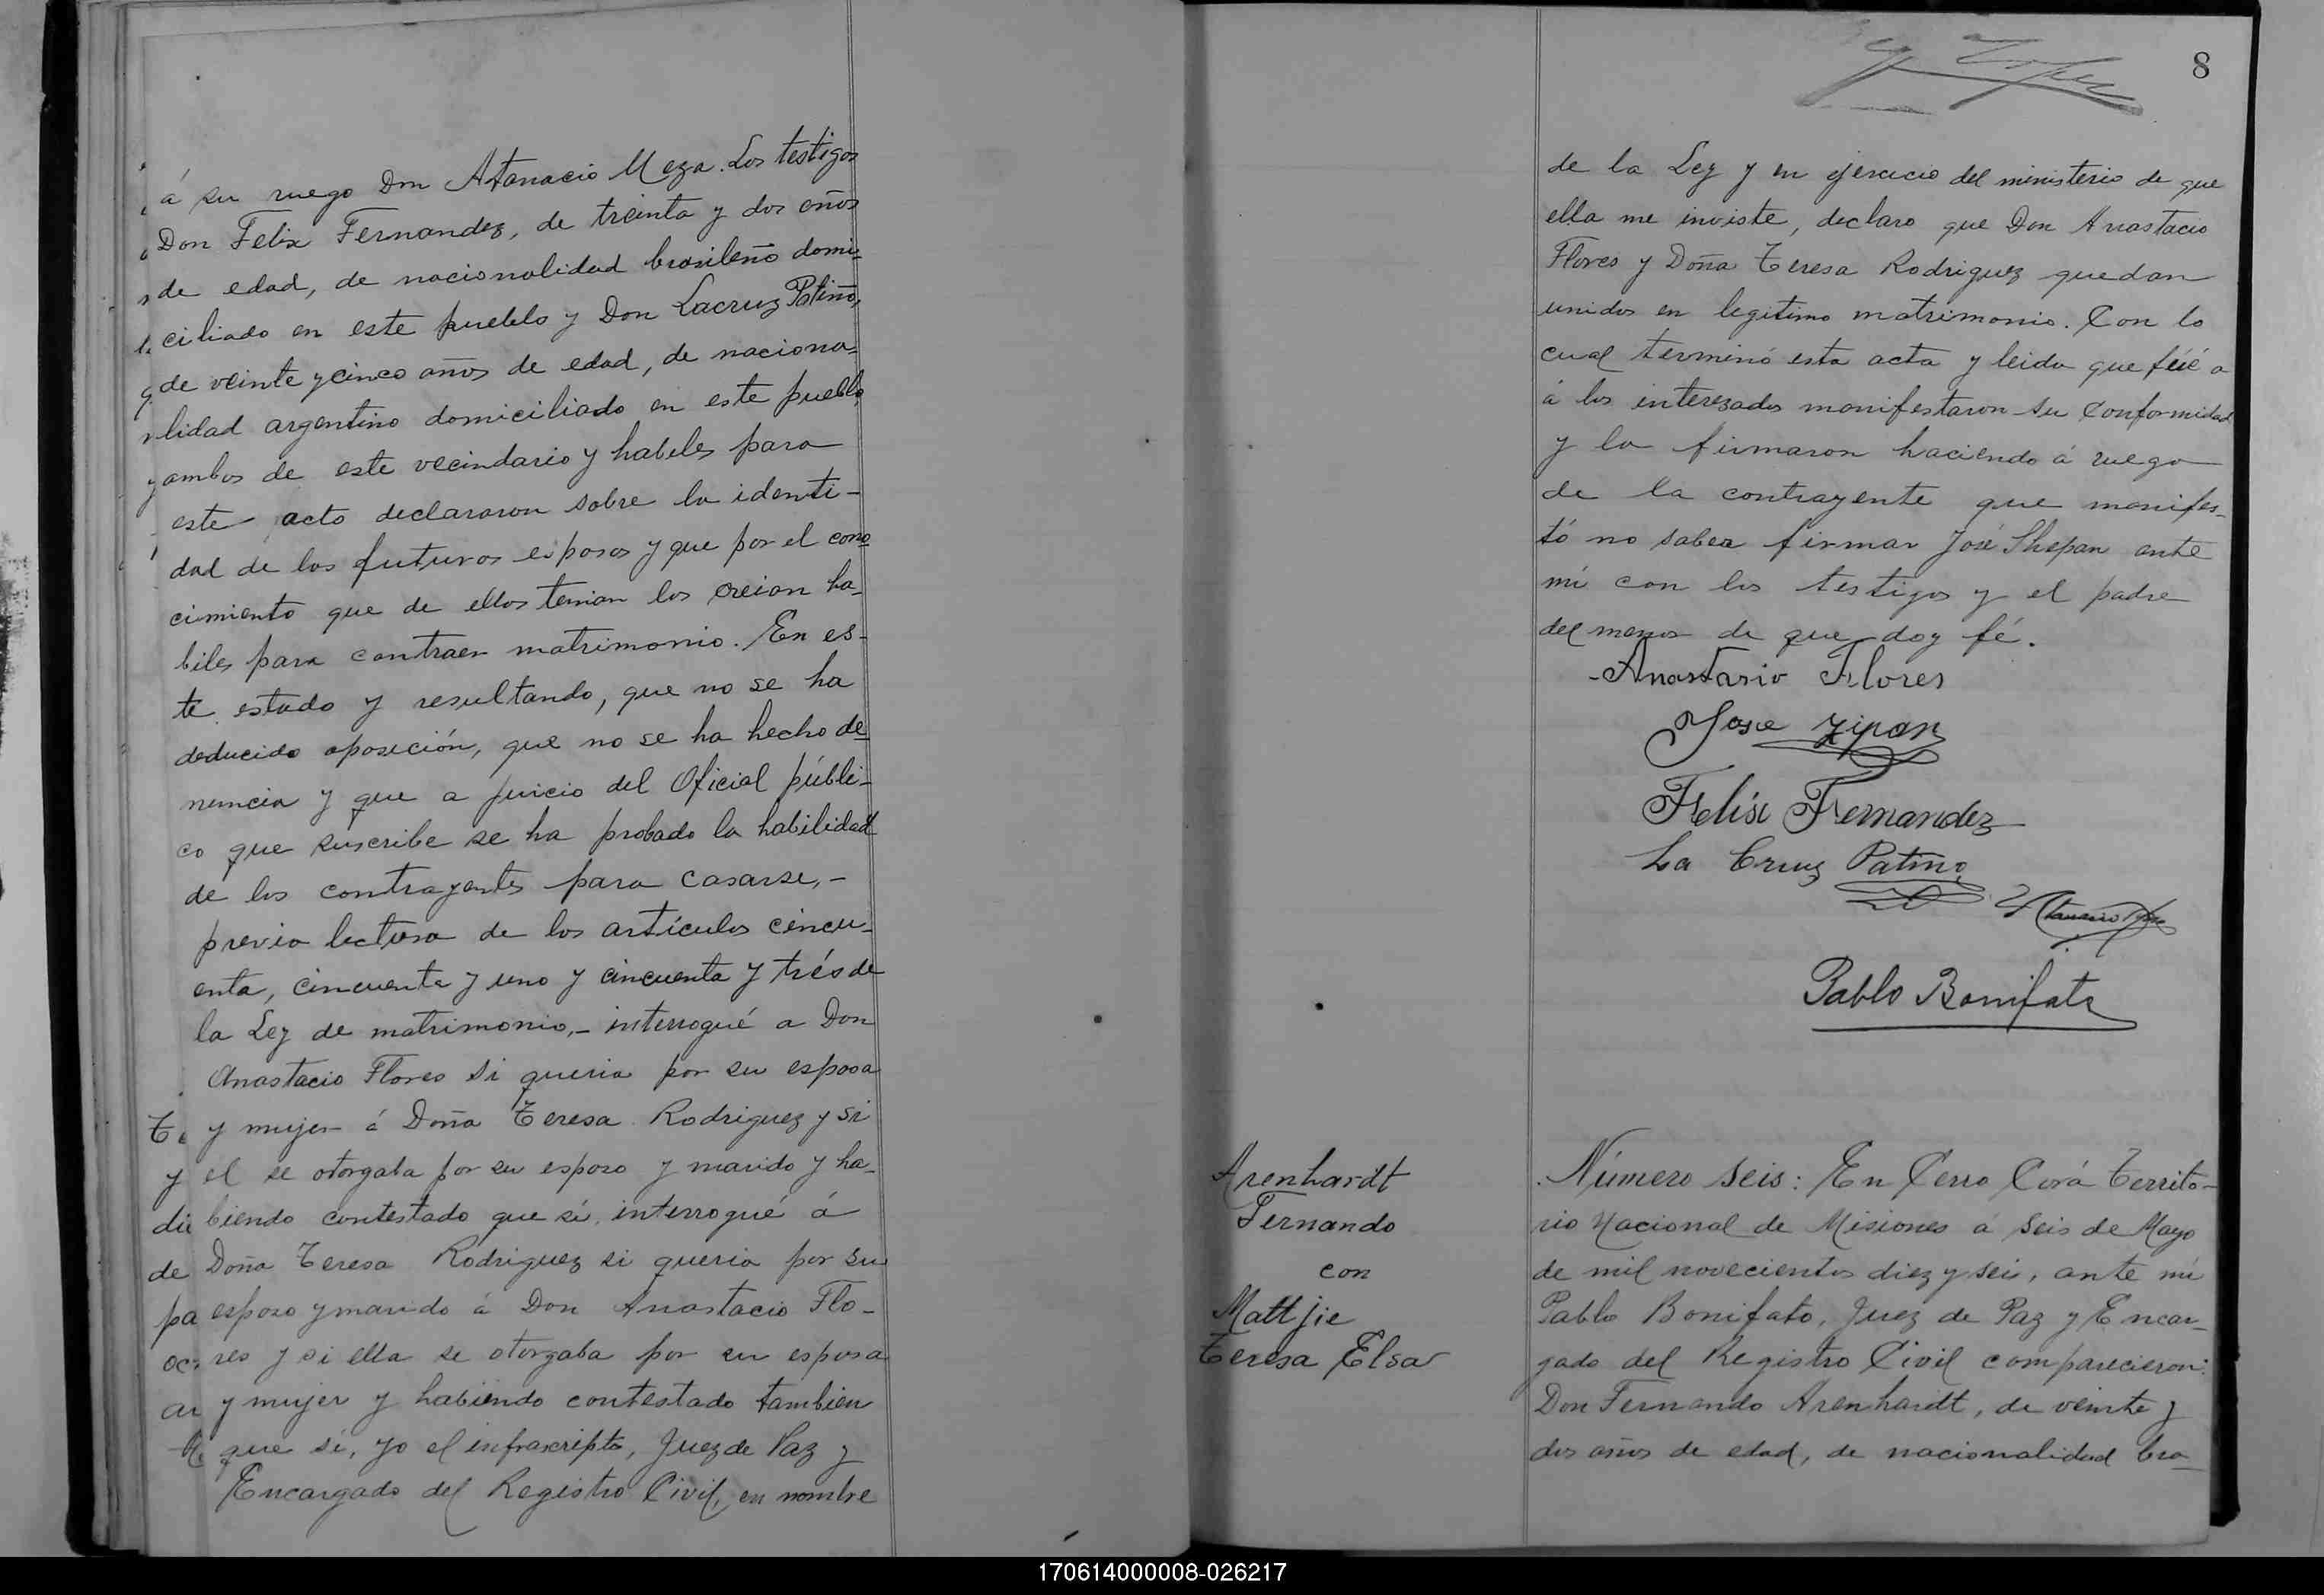 á su ruego Don Atanacio Meza. Los testigos
Don Felix Fernandez, de treinta y dos años
de edad, de nacionalidad brasileño domi-
ciliado en este pueblo y Don Lacruz Patiño,
de veinte y cinco años de edad, de naciona-
lidad argentino domiciliado en este pueblo,
ambos de este vecindario y habeles para
este acto declararon sobre la identi-
dad de los futuros esposos y que por el cono
cimiento que de ellos tenian los creian ha-
biles para contraer matrimonio. En es-
te estado y resultando, que no se ha
deducido oposición, que no se ha hecho de
nuncia y que a juicio del Oficial públi-
co que suscribe se ha probado la habilidad
de los contrayentes para casarse,-
previa lectura de los artículos cincu-
enta, cincuenta y uno y cincuenta y trés de
la Ley de matrimonio,- interrogué a Don
Anastacio Flores si queria por su esposa
y mujer á Doña Teresa Rodriguez y si
el se otorgaba por su esposo y marido y ha-
biendo contestado que sí, interrogué á
Doña Teresa Rodriguez si queria por su
esposo y marido á Don Anastacio Flo-
res y si ella se otorgaba por su esposa
y mujer y habiendo contestado tambien
que sí, yo el infrascripto, Juez de Paz y
Encargado del Registro Civil, en nombre
8
de la Ley y en ejercicio del ministerio de que
ella me inviste, declaro que Don Anastacio
Flores y Doña Teresa Rodriguez quedan
unidos en legitimo matrimonio. Con lo
cual terminó esta acta y leida que fué a
á los interezados manifestaron su conformidad
y la firmaron haciendo á ruego
de la contrayente que manifes-
tó no saber firmar José Shepan ante
mi con los testigos y el padre
del menor de que doy fé.
Anastasio Flores
Jose Zipan
Felix Fernandez
La Cruz Patiño
Pablo Bonifato
Arenhardt
Fernando
con
Mattjie
Teresa Elsa
Número seis: En Cerro Corá Territo-
rio Nacional de Misiones á seis de Mayo
de mil novecientos diez y seis, ante mi
Pablo Bonifato, Juez de Paz y Encar-
gado del Registro Civil comparecieron:
Don Fernando Arenhardt, de veinte y
dos años de edad, de nacionalidad bra-
170614000008-026217